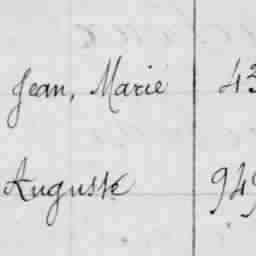 Jean, Marie 43
Auguste 949